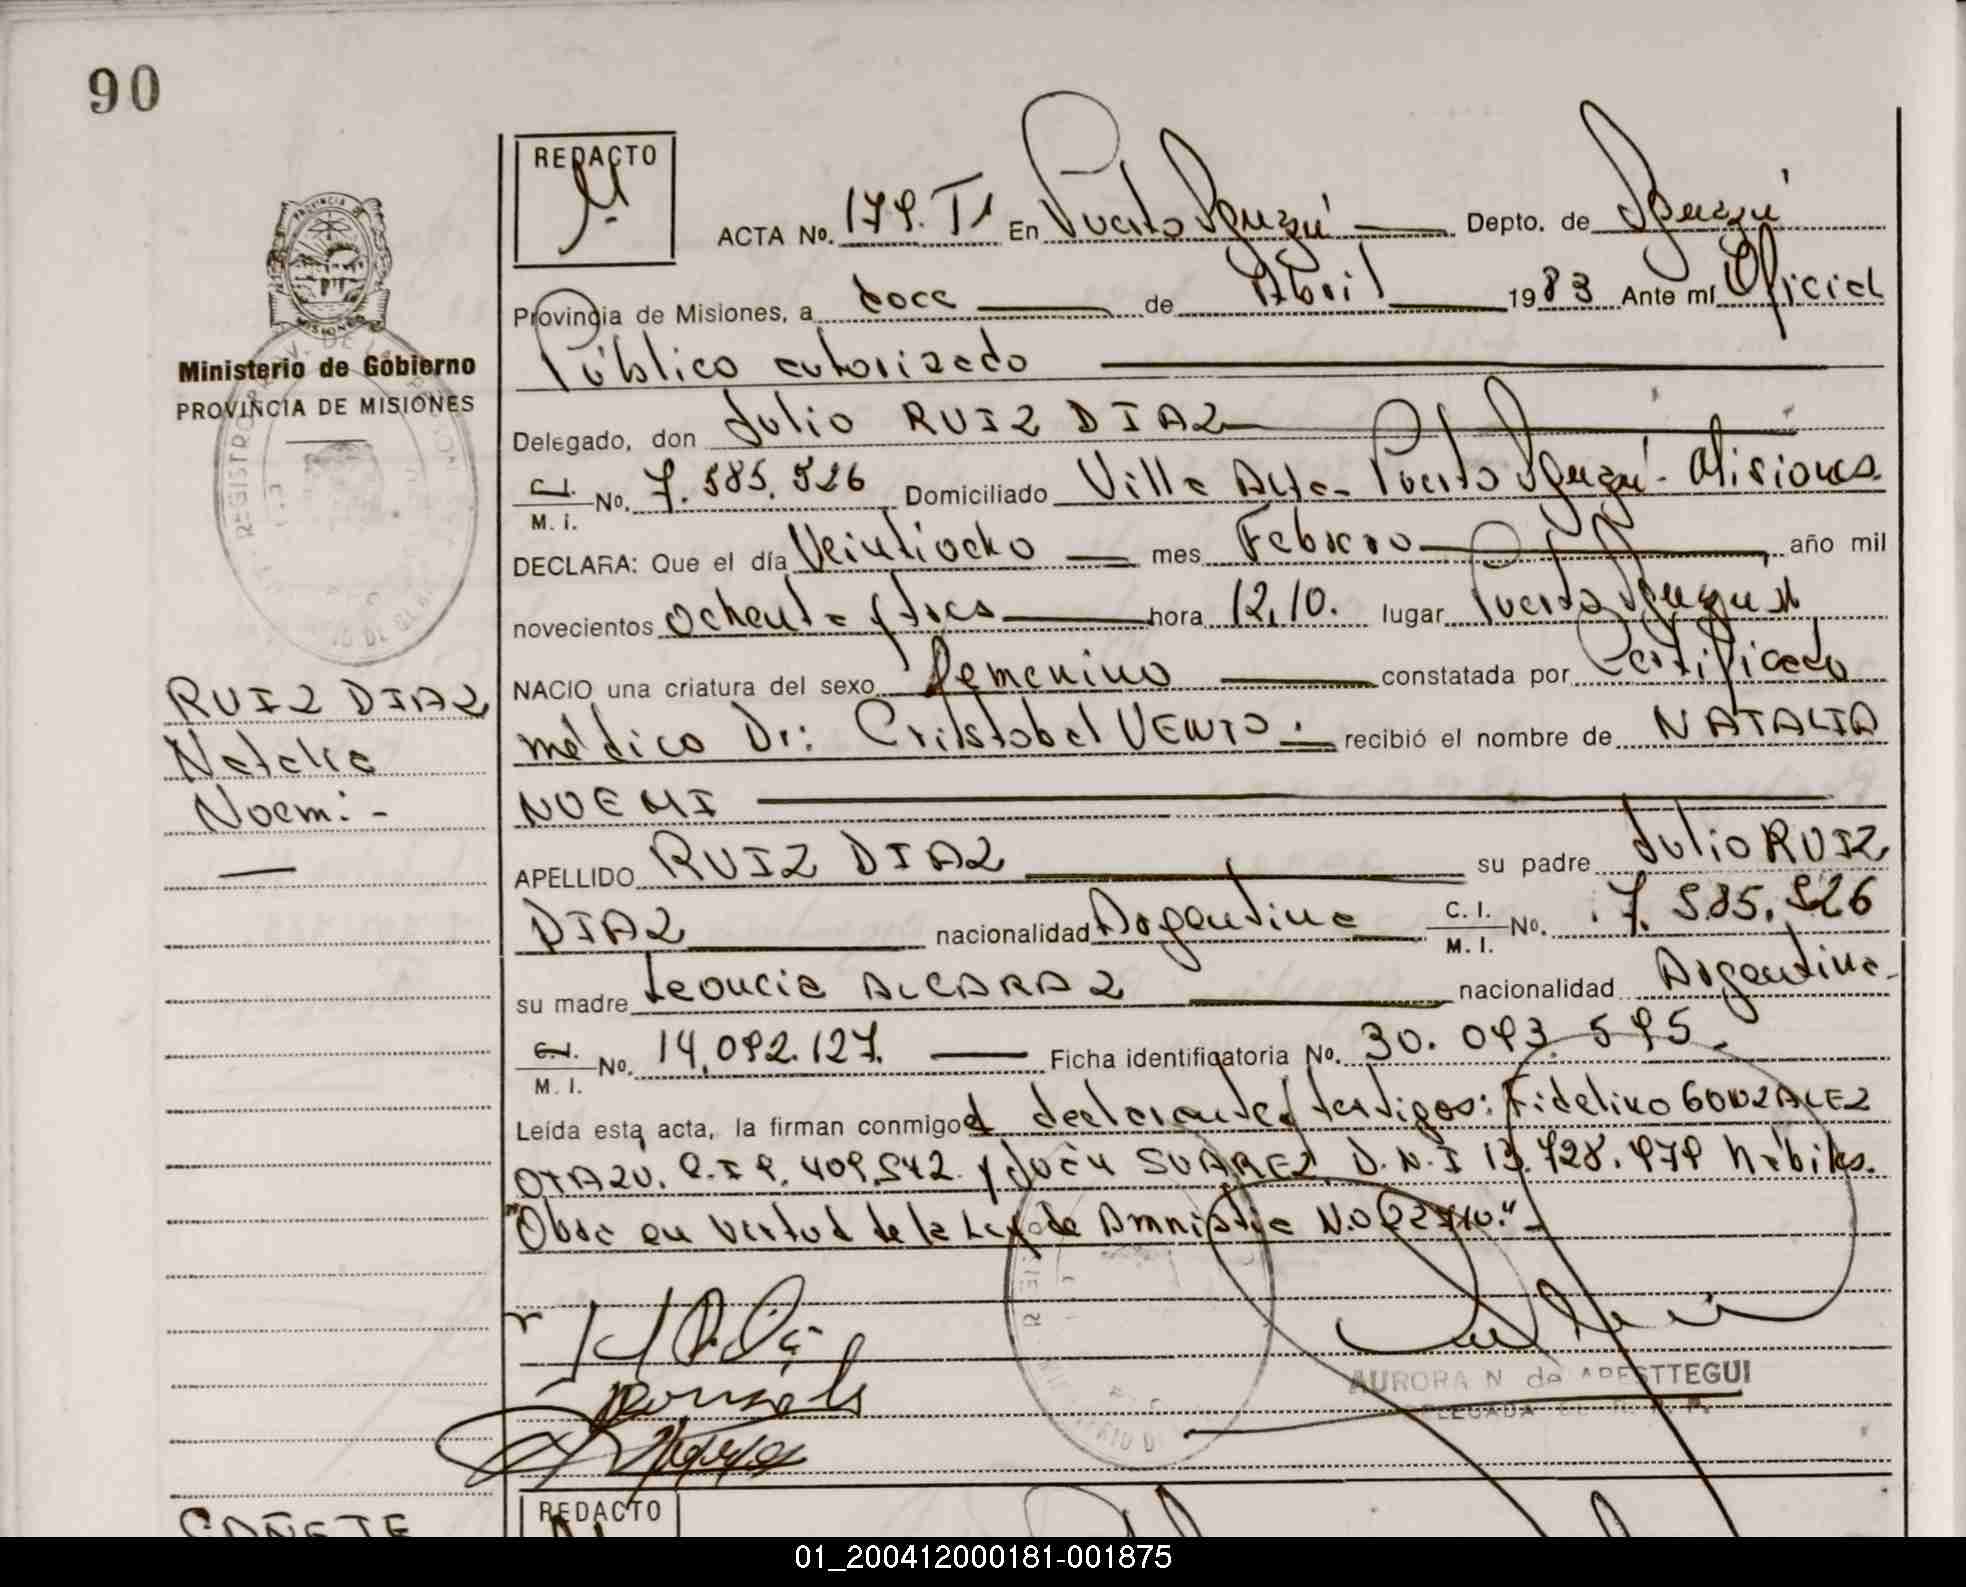 90
REDACTO
ACTA No. 179. T1 En Puerto Iguazú Depto. de Iguazú
Provincia de Misiones, a doce de Abril 1983 Ante mí Oficial
Público autorizado
Delegado, don Julio RUIZ DIAZ
C.I. M. I. No. 7.585.526 Domiciliado Villa Alta- Puerto Iguazú- Misiones.
Ministerio de Gobierno
PROVINCIA DE MISIONES
DECLARA: Que el día Veintiocho mes Febrero año mil
novecientos Ochenta y tres hora 12,10. lugar Puerto Iguazú
NACIO una criatura del sexo Femenino constatada por Certificado
médico Dr: Cristobal VENTO.- recibió el nombre de NATALIA
NOEMI
APELLIDO RUIZ DIAZ su padre Julio RUIZ
DIAZ nacionalidad Argentina C. I. M. I. No. 7.585.526
su madre Leoncia ALCARAZ nacionalidad Argentina-
C.I. M. I. No. 14,092.127. Ficha identificatoria No. 30.093.595.
Leída esta acta, la firman conmigo el declarante y testigos: Fidelino GONZALEZ
OTAZU. C.I P. 409.542. y Juan SUAREZ D.N.I 13.728.979 hábiles.
"Obdc en virtud de la Ley de Amnistia N.o 22410."-
RUIZ DIAZ
Natalia
Noemi-
AURORA N de APESTTEGUI
DELEGADA
CAÑETE
REDACTO
01_200412000181-001875